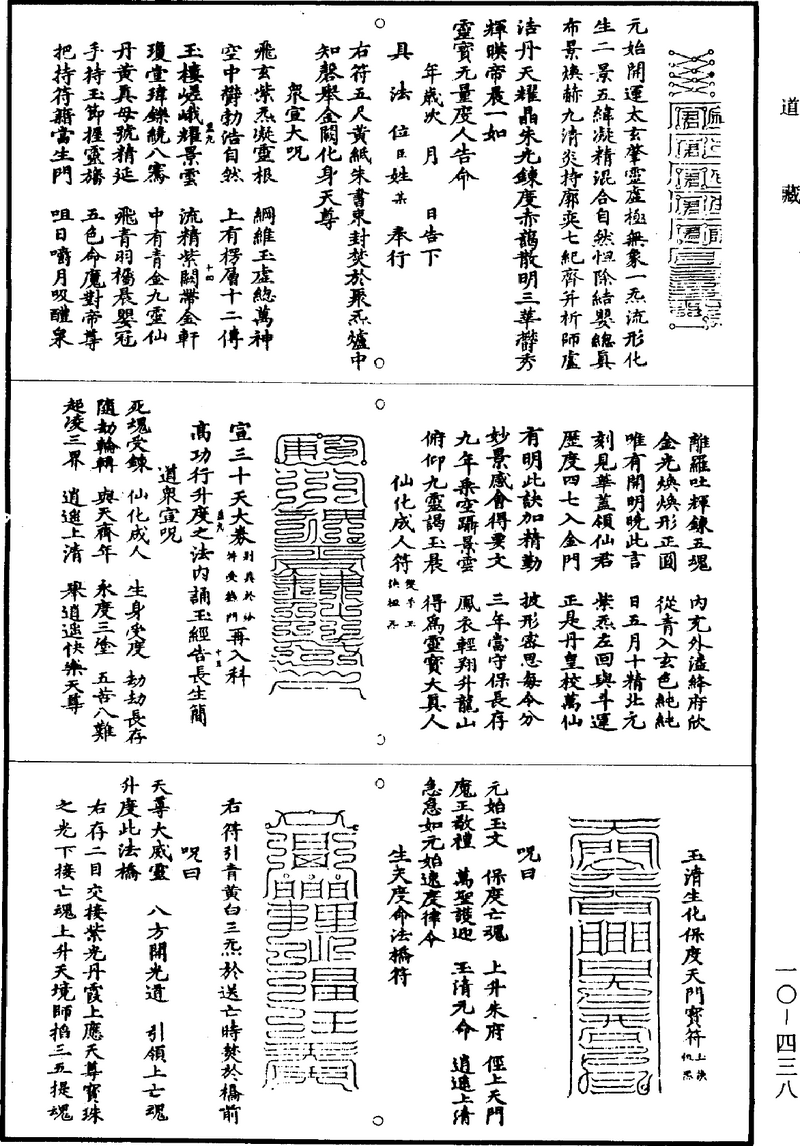 道藏
一〇-四三八
元始開運太玄肇靈虛極無象一炁流形化
生二景五緯凝精混合自然恒除結嬰總真
布景煥赫九清炎持廓奕七紀齊并析師虛
洁丹天耀晶朱光鍊度赤鶴散明三華欝秀
輝暎帝晨一如
靈寶无量度人告命
年歲次 月 日告下
具 法 位臣姓某 奉行
右符五尺黃紙朱書束封焚於聚炁爐中
知磬舉金闕化身天尊
眾宣大呪
飛玄紫炁凝靈根 綱維玉虛總萬神
空中欝勃浩自然 上有楞層十二傳
玉樓嵯峨耀景雲 流精紫闕帶金軒
瓊堂瑋鑠統八騫 中有青金九靈仙
丹黃真母號精延 飛青羽𧟌晨嬰冠
手持玉節握靈旛 五色命魔對帝尊
把持符籍當生門 咀日嚼月吸醴泉
離羅吐輝鍊五魂 內充外溢絳府欣
金光煥煥形正圓 從青入玄色純純
唯有開明曉此言 日五月十精北元
刻見華蓋領仙君 紫炁左回與斗運
歷度四七入金門 正是丹皇校萬仙
有明此訣加精勤 披形密思每令分
妙景感會得要文 三年當守保長存
九年乘空躡景雲 鳳衣輕翔升龍山
俯仰九靈謁玉晨 得為靈寶大真人
仙化成人符
宣三十天大卷 再入科
高功行升度之法內誦玉經告長生簡
道眾宣呪
死魂受鍊 仙化成人 生身受度 劫劫長存
隨劫輪轉 與天齊年 永度三塗 五苦八難
超凌三界 逍遙上清 舉逍遥快樂天尊
玉清生化保度天門寶符
呪曰
元始玉文 保度亡魂 上升朱府 徑上天門
魔王敬禮 萬聖護迎 玉清元命 逍遙上清
急急如元始速度律令
生天度命法橋符
右符引青黃白三炁於送亡時焚於橋前
呪曰
天尊大威靈 八方開光道 引領上亡魂
升度此法橋
右存二目交接紫光丹霞上應天尊寶珠
之光下接亡魂上升天境師掐三五提魂